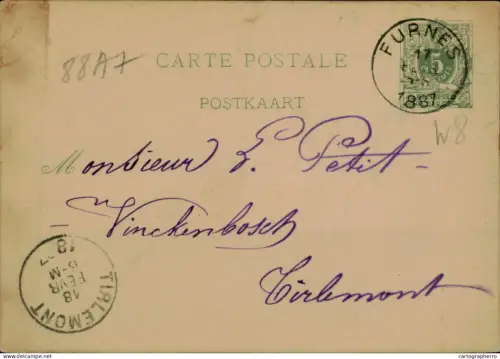 88A7
CARTE POSTALE
POSTKAART
FURNES
17
1887
5
W8
Monsieur E. Petit-
- Vinckenbosch
Tirlemont
TIRLEMONT
18
FEVR
6-M
1887
www.cartographero.com